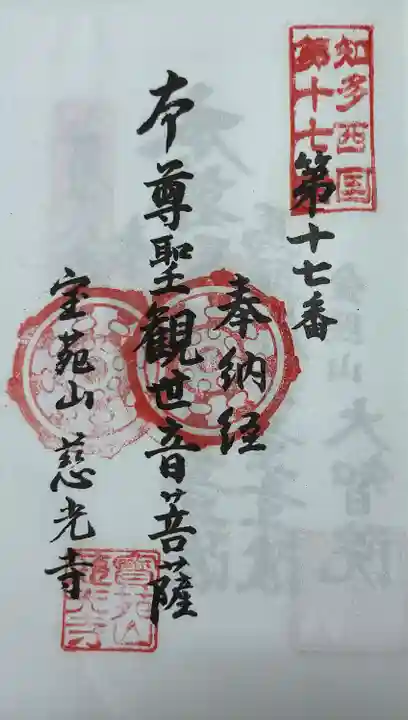 知多西国
第十七
第十七番
奉納経
本尊聖観世音菩薩
宝苑山 慈光寺
寶苑山
慈光寺
大智院